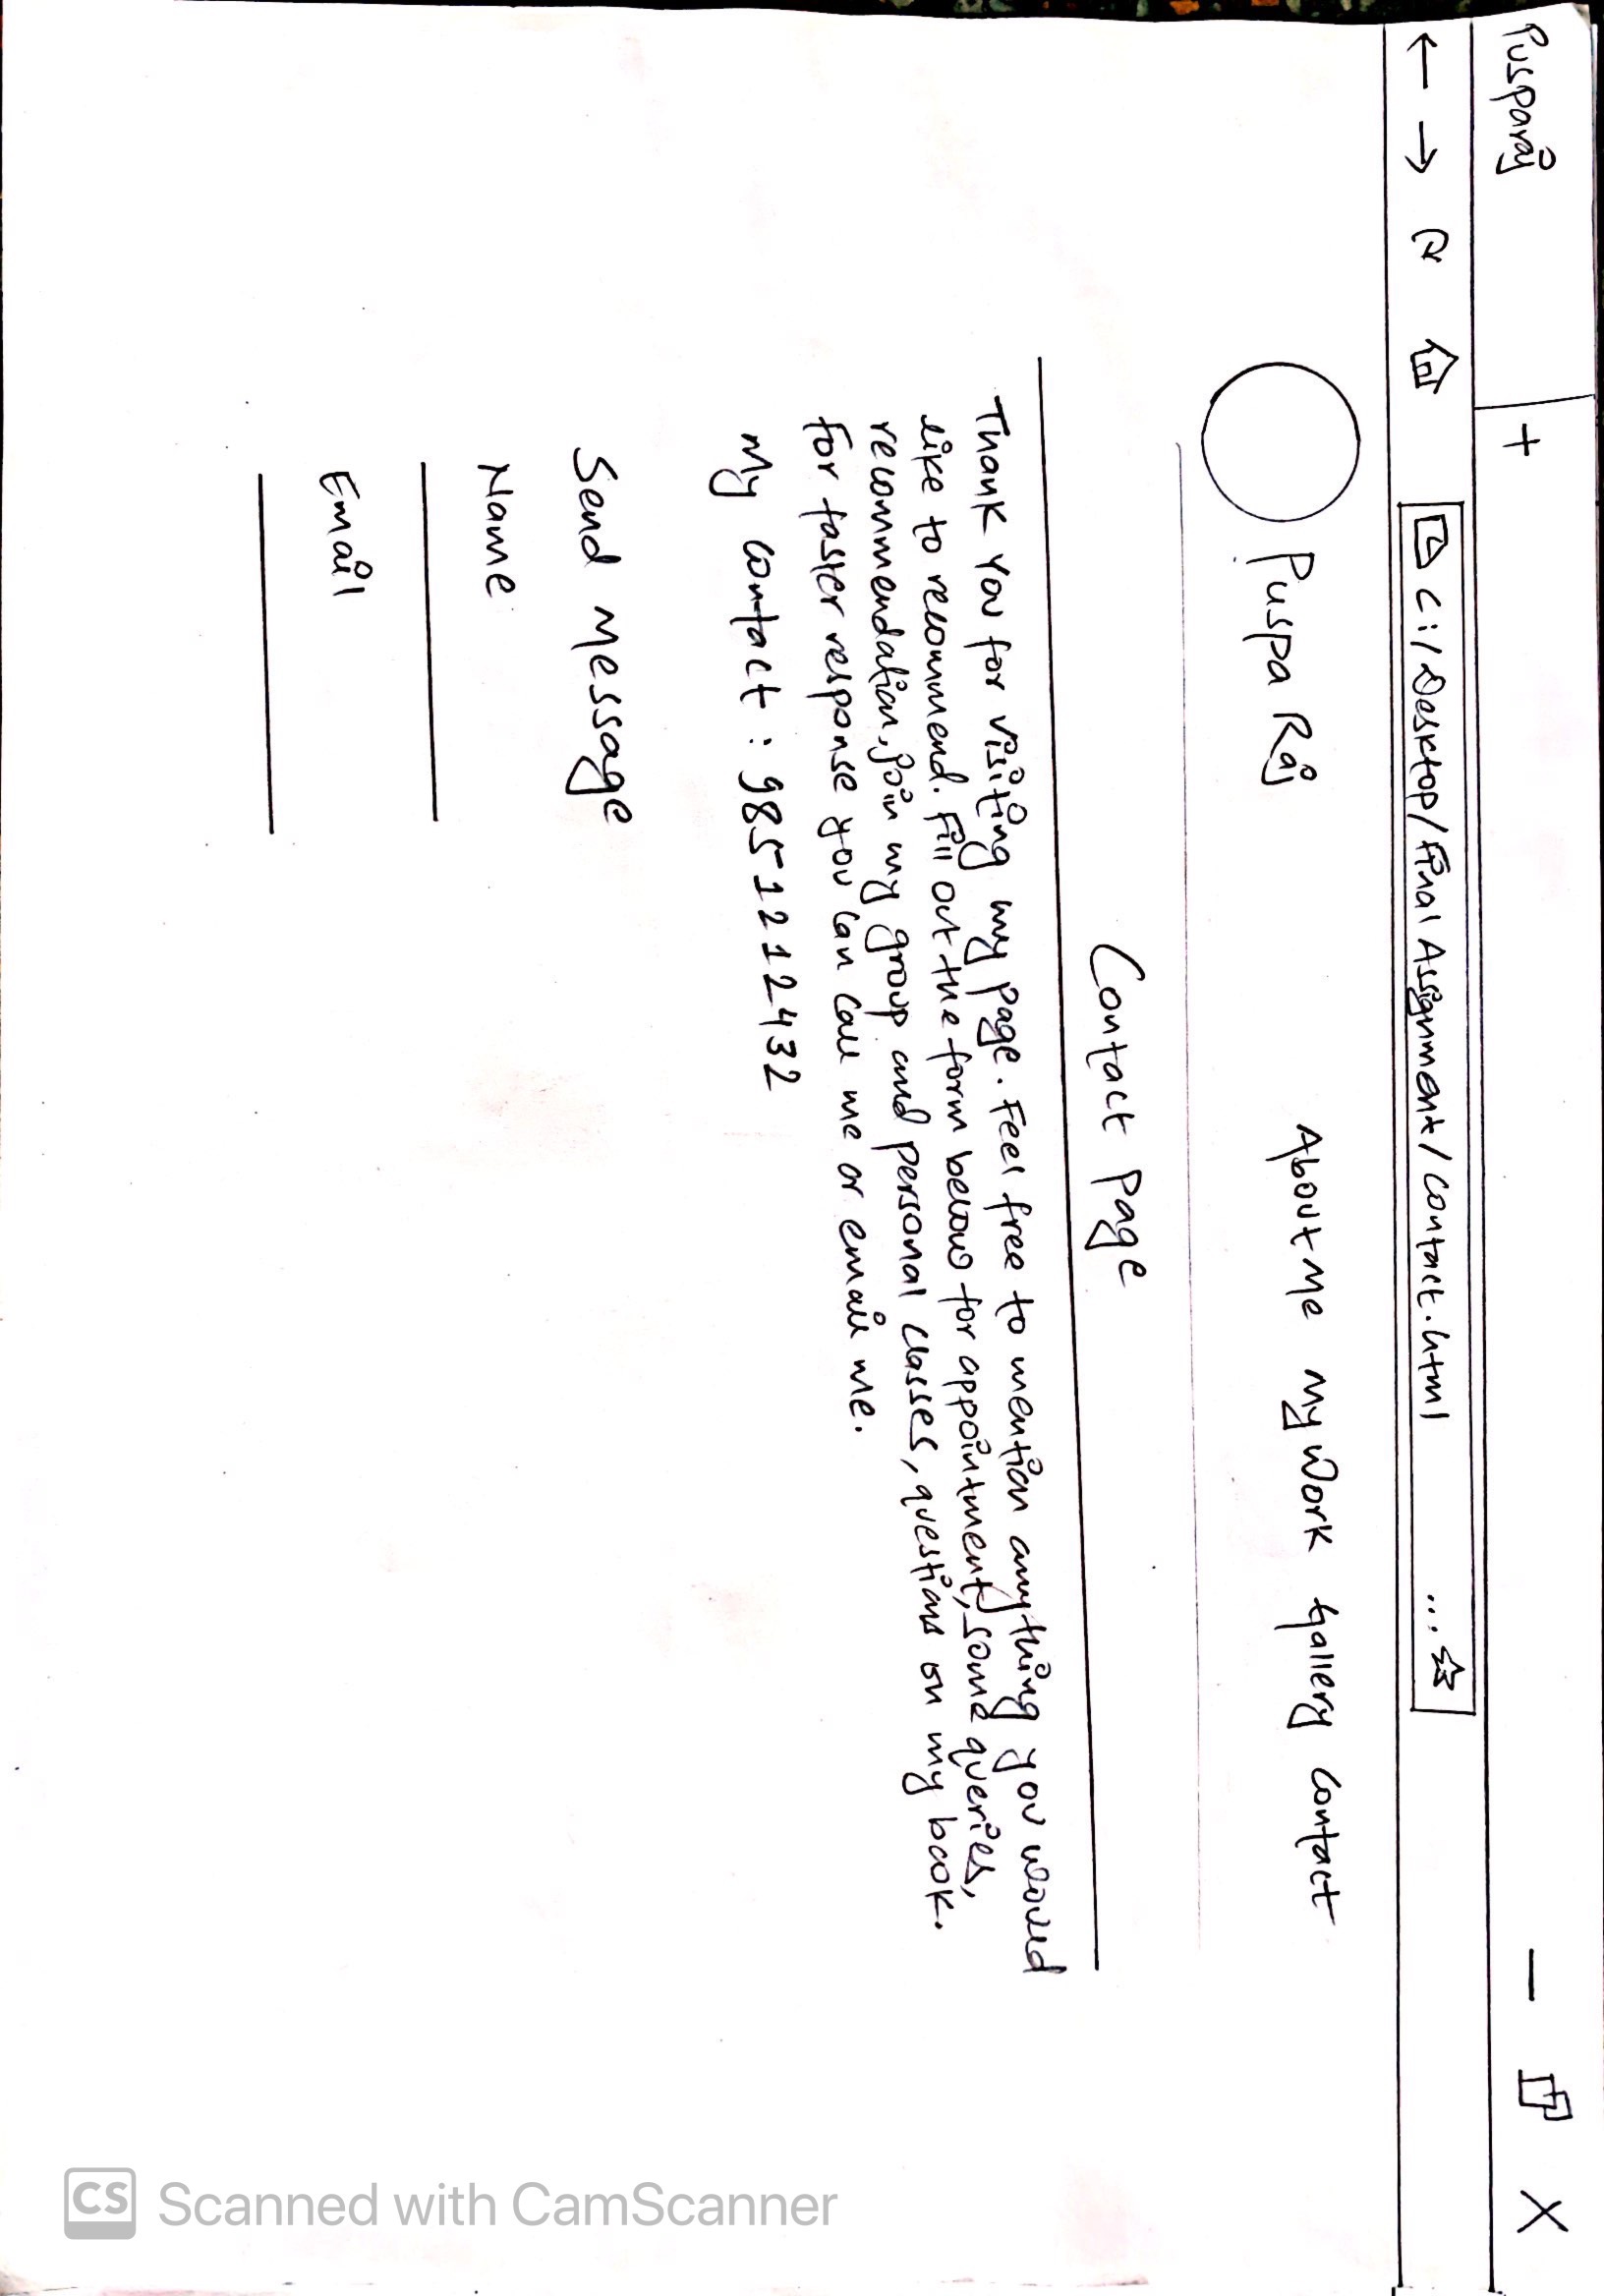 Pusparaj +
C:/Desktop/Final Assignment/contact.html ...
Puspa Raj
About Me My Work Gallery Contact
Contact Page
Thank You for visiting my page. Feel free to mention anything you would
like to recommend. Fill out the form below for appointment, some queries,
recommendation, join my group and personal classes, questions on my book.
For faster response you can call me or email me.
My contact : 9851212432
Send Message
Name
Email
CS Scanned with CamScanner